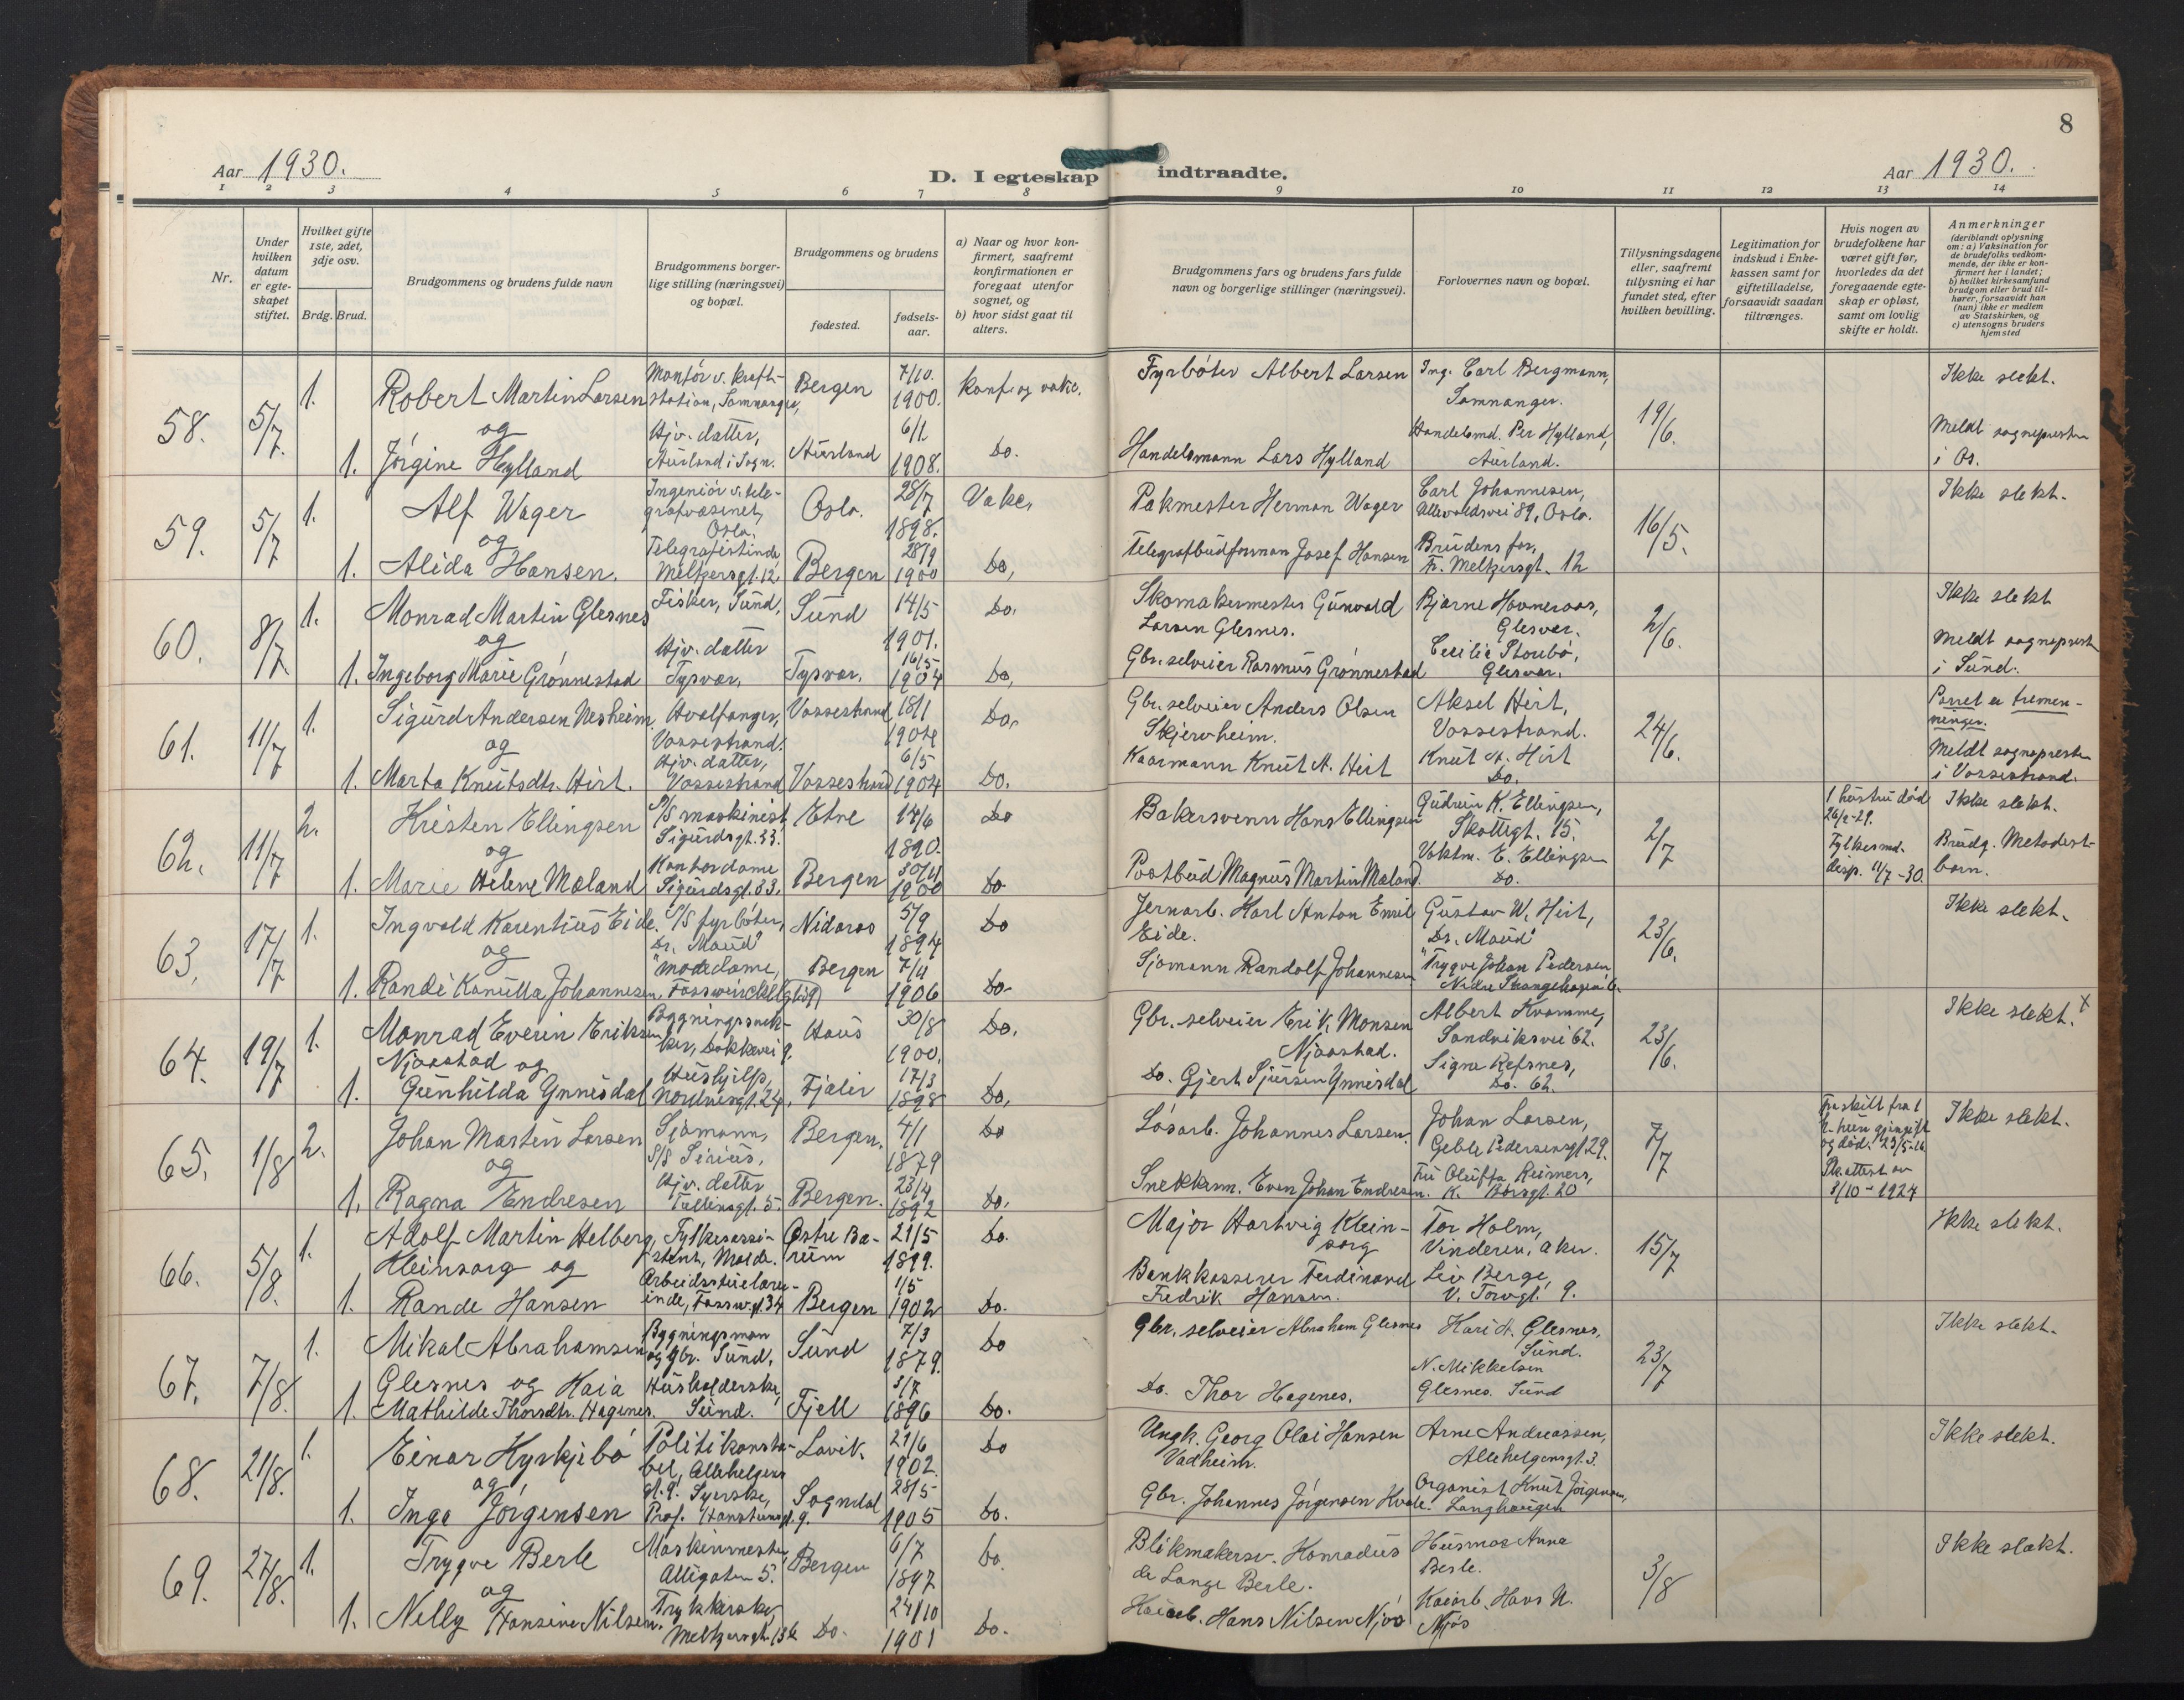 8
Aar 1930.
D. I egteskap indtraadte.
Aar 1930.
1 2 3 4 5 6 7 8 9 10 11 12 13 14
Nr.
Under hvilken datum er egteskapet stiftet.
Hvilket gifte 1ste, 2det, 3dje osv.
Brdg. Brud.
Brudgommens og brudens fulde navn
Brudgommens borgerlige stilling (næringsvei) og bopæl.
Brudgommens og brudens
fødested.
fødselsaar.
a) Naar og hvor konfirmert, saafremt konfirmationen er foregaat utenfor sognet, og
b) hvor sidst gaat til alters.
Brudgommens fars og brudens fars fulde navn og borgerlige stillinger (næringsvei).
Forlovernes navn og bopæl.
Tillysningsdagene eller, saafremt tillysning ei har fundet sted, efter hvilken bevilling.
Legitimation for indskud i Enkekassen samt for giftetilladelse, forsaavidt saadan tiltrænges.
Hvis nogen av brudefolkene har været gift før, hvorledes da det foregaaende egteskap er opløst, samt om lovlig skifte er holdt.
Anmerkninger
(deriblandt oplysning om: a) Vaksination for de brudefolks vedkommende, der ikke er konfirmert her i landet; b) hvilket kirkesamfund brudgom eller brud tilhører, forsaavidt han (hun) ikke er medlem av Statskirken, og c) utensogns bruders hjemsted
58. 5/7 1. Robert Martin Larsen Montør v. kraftstation, Samnanger, Bergen 7/10. 1900. Konf. og vakc. Fyrbøter Albert Larsen Ing. Carl Bergmann, Samnanger. 19/6. Ikke slekt.
og
1. Jørgine Hylland Hjv. datter, Aurland i Sogn. Aurland 6/1 1908. Do. Handelsmann Lars Hylland Handelsmd. Per Hylland, Aurland. Meldt sognepresten i Os.
59. 5/7 1. Alf Wager Ingeniør v. telegrafvæsenet, Oslo. Oslo. 28/7 1898. Vakc. Pakmester Herman Wager Carl Johannesen, Ullevoldsvei 89, Oslo. 16/5. Ikke slekt.
og
1. Alida Hansen. Telegrafistinde Meltzersgt. 12, Bergen 28/9 1900 Do, Telegrafbudforman Josef Hansen Brudens far, F. Meltzersgt. 12
60. 8/7. 1. Monrad Martin Glesnes Fisker, Sund, Sund 14/5 1901. Do. Skomakermester Gunvald Larsen Glesnes. Bjarne Havneraas, Glesvær. 2/6. Ikke slekt
og
1. Ingeborg Marie Grønnestad Hjv. datter Tysvær, Tysvær. 16/5 1904 Do, Gbr. selveier Rasmus Grønnestad Cecilie Storebø, Glesvær. Meldt sogneprest i Sund.
61. 11/7 1. Sigurd Andersen Nesheim Hvalfanger, Vossestrand. Vossestrand 18/1 1904 Do. Gbr. selveier Anders Olsen Skjervheim. Aksel Hirt, Vossestrand. 24/6. Parret er tremenninger.
og
1. Marta Knutsdtr. Hirt. Hjv. datter, Vossestrand Vossestrand 6/5 1904 Do. Kaarmann Knut A. Hirt Knut A. Hirt Do. Meldt sognepresten i Vossestrand.
62. 11/7 2. Kristen Ellingsen S/S maskinist Sigurdsgt. 33. Etne 14/6 1890. Do Bakersvenn Hans Ellingsen Gudrun K. Ellingsen, Skottegt. 15. 2/7 1 hustru død 26/2-29. Ikke slekt.
og
1. Marie Helene Mæland Kontordame Sigurdsgt. 33, Bergen 30/11 1900 Do Postbud Magnus Martin Mæland. Vaktm. E. Ellingsen Do. Fylkesmd. disp. 11/7-30. Brudg. Metodistbarn.
63. 17/7 1. Ingvald Karentius Eide. S/S fyrbøter, Dr. "Maud" Nidaros 5/9 1894 Do Jernarb. Karl Anton Emil Eide. Gustav W. Hirt, Dr. "Maud" 23/6. Ikke slekt.
og
1. Randi Kanutta Johannesen, modedame, Fosswinckelsgt. 19 Bergen 7/4 1906 Do Sjømann Randolf Johannesen Trygve Johan Pedersen Nedre Strangehagen 6.
64. 19/7 1. Monrad Everin Eriksen Njaastad og Bygningssnekker, Dokkevei 9. Haus 30/8 1900. Do. Gbr. selveier Erik Monsen Njaastad. Albert Kvamme, Sandviksvei 62. 23/6. Ikke slekt. X
1. Gunhilda Ynnesdal Hushjelp, Nordnesgt. 24, Fjaler 17/3 1898 Do, Do. Gjert Sjursen Ynnesdal Signe Refsnes, Do. 62.
65. 1/8 2. Johan Martin Larsen Sjømann, S/S Sirius, Bergen. 4/1 1879 Do Løsarb. Johannes Larsen. Johan Larsen, Geble Pedersensgt. 29. 7/7 Fraskilt fra 1 og død. 23/5-26 Sk.attest av 8/10-1927 Ikke slekt.
og
1. Ragna Endresen Hjv. datter Tullinsgt. 5. Bergen. 23/4 1892 Do. Snekkerm. Even Johan Endresen. Fru Oluffa Reimers, K. Børsgt. 20
66. 5/8. 1. Adolf Martin Helberg Kleinsorg og Fylkesassistent, Molde. Østre Bærum 21/5 1899. Do. Major Hartvig Kleinsorg Tor Holm, Vinderen, Aker. 15/7 Ikke slekt.
1. Rande Hansen Arbeidsstuelærerinde, Fosswgt. 34 Bergen 1/5 1902 Do. Bankkasserer Ferdinand Fredrik Hansen. Leiv Berge, V. Torvgt. 9.
67. 7/8. 1. Mikal Abrahamsen Glesnes og Kaia Bygningsman og gbr. Sund, Sund 7/3 1879. Do Gbr. selveier Abraham Glesnes Kari A. Glesnes, Sund. 23/7 Ikke slekt.
1. Mathilde Thorsdtr. Hagenes. Husholderske, Sund. Fjell 3/7 1896 Do. Do. Thor Hagenes. N. Mikkelsen Glesnes Sund
68. 21/8. 1. Einar Hyrkjebø Politikonstabel, Allehelgensgt. 9. Lavik. 21/6 1902. Do Ungk. Georg Olai Hansen Vadheim. Arne Andreassen, Allehelgensgt. 3. Ikke slekt.
og
1. Inga Jørgensen Syerske, Prof. Hansteensgt. 9. Sogndal 28/5 1905 Do. Gbr. Johannes Jørgensen Kvale. Organist Knut Jørgensen, Langhaugen
69. 27/8. 1. Trygve Berle Maskinmester Allégaten 5. Bergen 6/7 1897 Do. Blikmakersv. Konradus de Lange Berle. Husmor Anna Berle. 3/8 Ikke slekt.
og
1. Nelly Hansine Nilsen. Trykkerske, Meltzersgt. 13b Do. 24/10 1901 Do. Kaiarb. Hans Nilsen Njøs Kaiarb. Hans N. Njøs